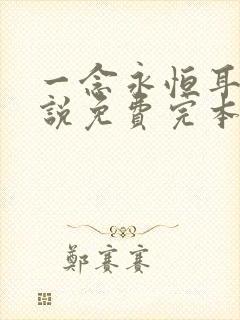 一念永恒耳
說免費完本
鄭賽賽